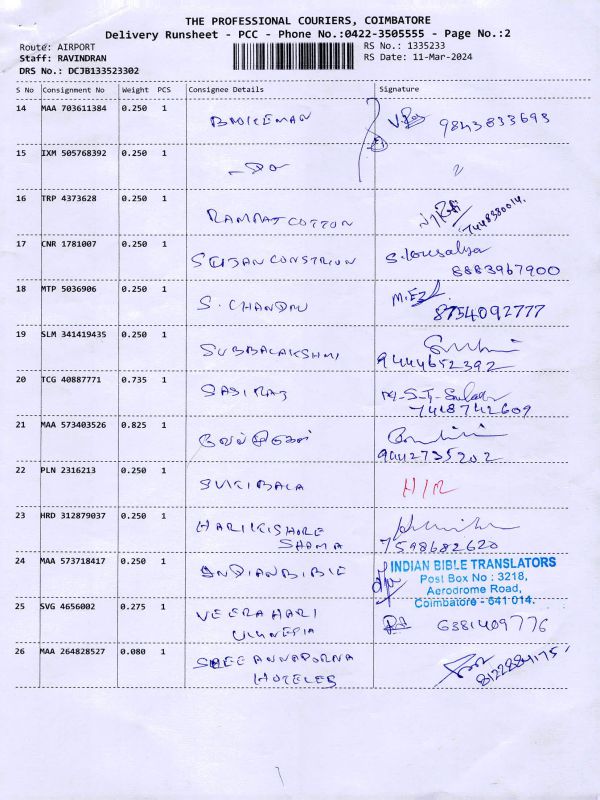 THE PROFESSIONAL COURIERS, COIMBATORE
Delivery Runsheet - PCC - Phone No.:0422-3505555 - Page No.:2
Route: AIRPORT
RS No.: 1335233
Staff: RAVINDRAN
RS Date: 11-Mar-2024
DRS No.: DCJB133523302
S No Consignment No Weight PCS Consignee Details Signature
14 MAA 703611384 0.250 1 9843833693
15 IXM 505768392 0.250 1 -DO
16 TRP 4373628 0.250 1 COTTON 7448380014.
17 CNR 1781007 0.250 1
8883967900
18 MTP 5036906 0.250 1 S. CHANDRU
8754092777
19 SLM 341419435 0.250 1 SUBBALAKSHMI
9444652392
20 TCG 40887771 0.735 1 SASIRAJ
7418742609
21 MAA 573403526 0.825 1
9442735202
22 PLN 2316213 0.250 1 SUKIBALA H/R
23 HRD 312879037 0.250 1 HARIKISHORE
SHAMA 7598682620
24 MAA 573718417 0.250 1 INDIANBIBLE INDIAN BIBLE TRANSLATORS
Post Box No : 3218,
Aerodrome Road,
Coimbatore - 641 014.
25 SVG 4656002 0.275 1 VEERA HARI
6381409776
26 MAA 264828527 0.080 1 SHREE ANNAPORNA
HOTELES 8122884175